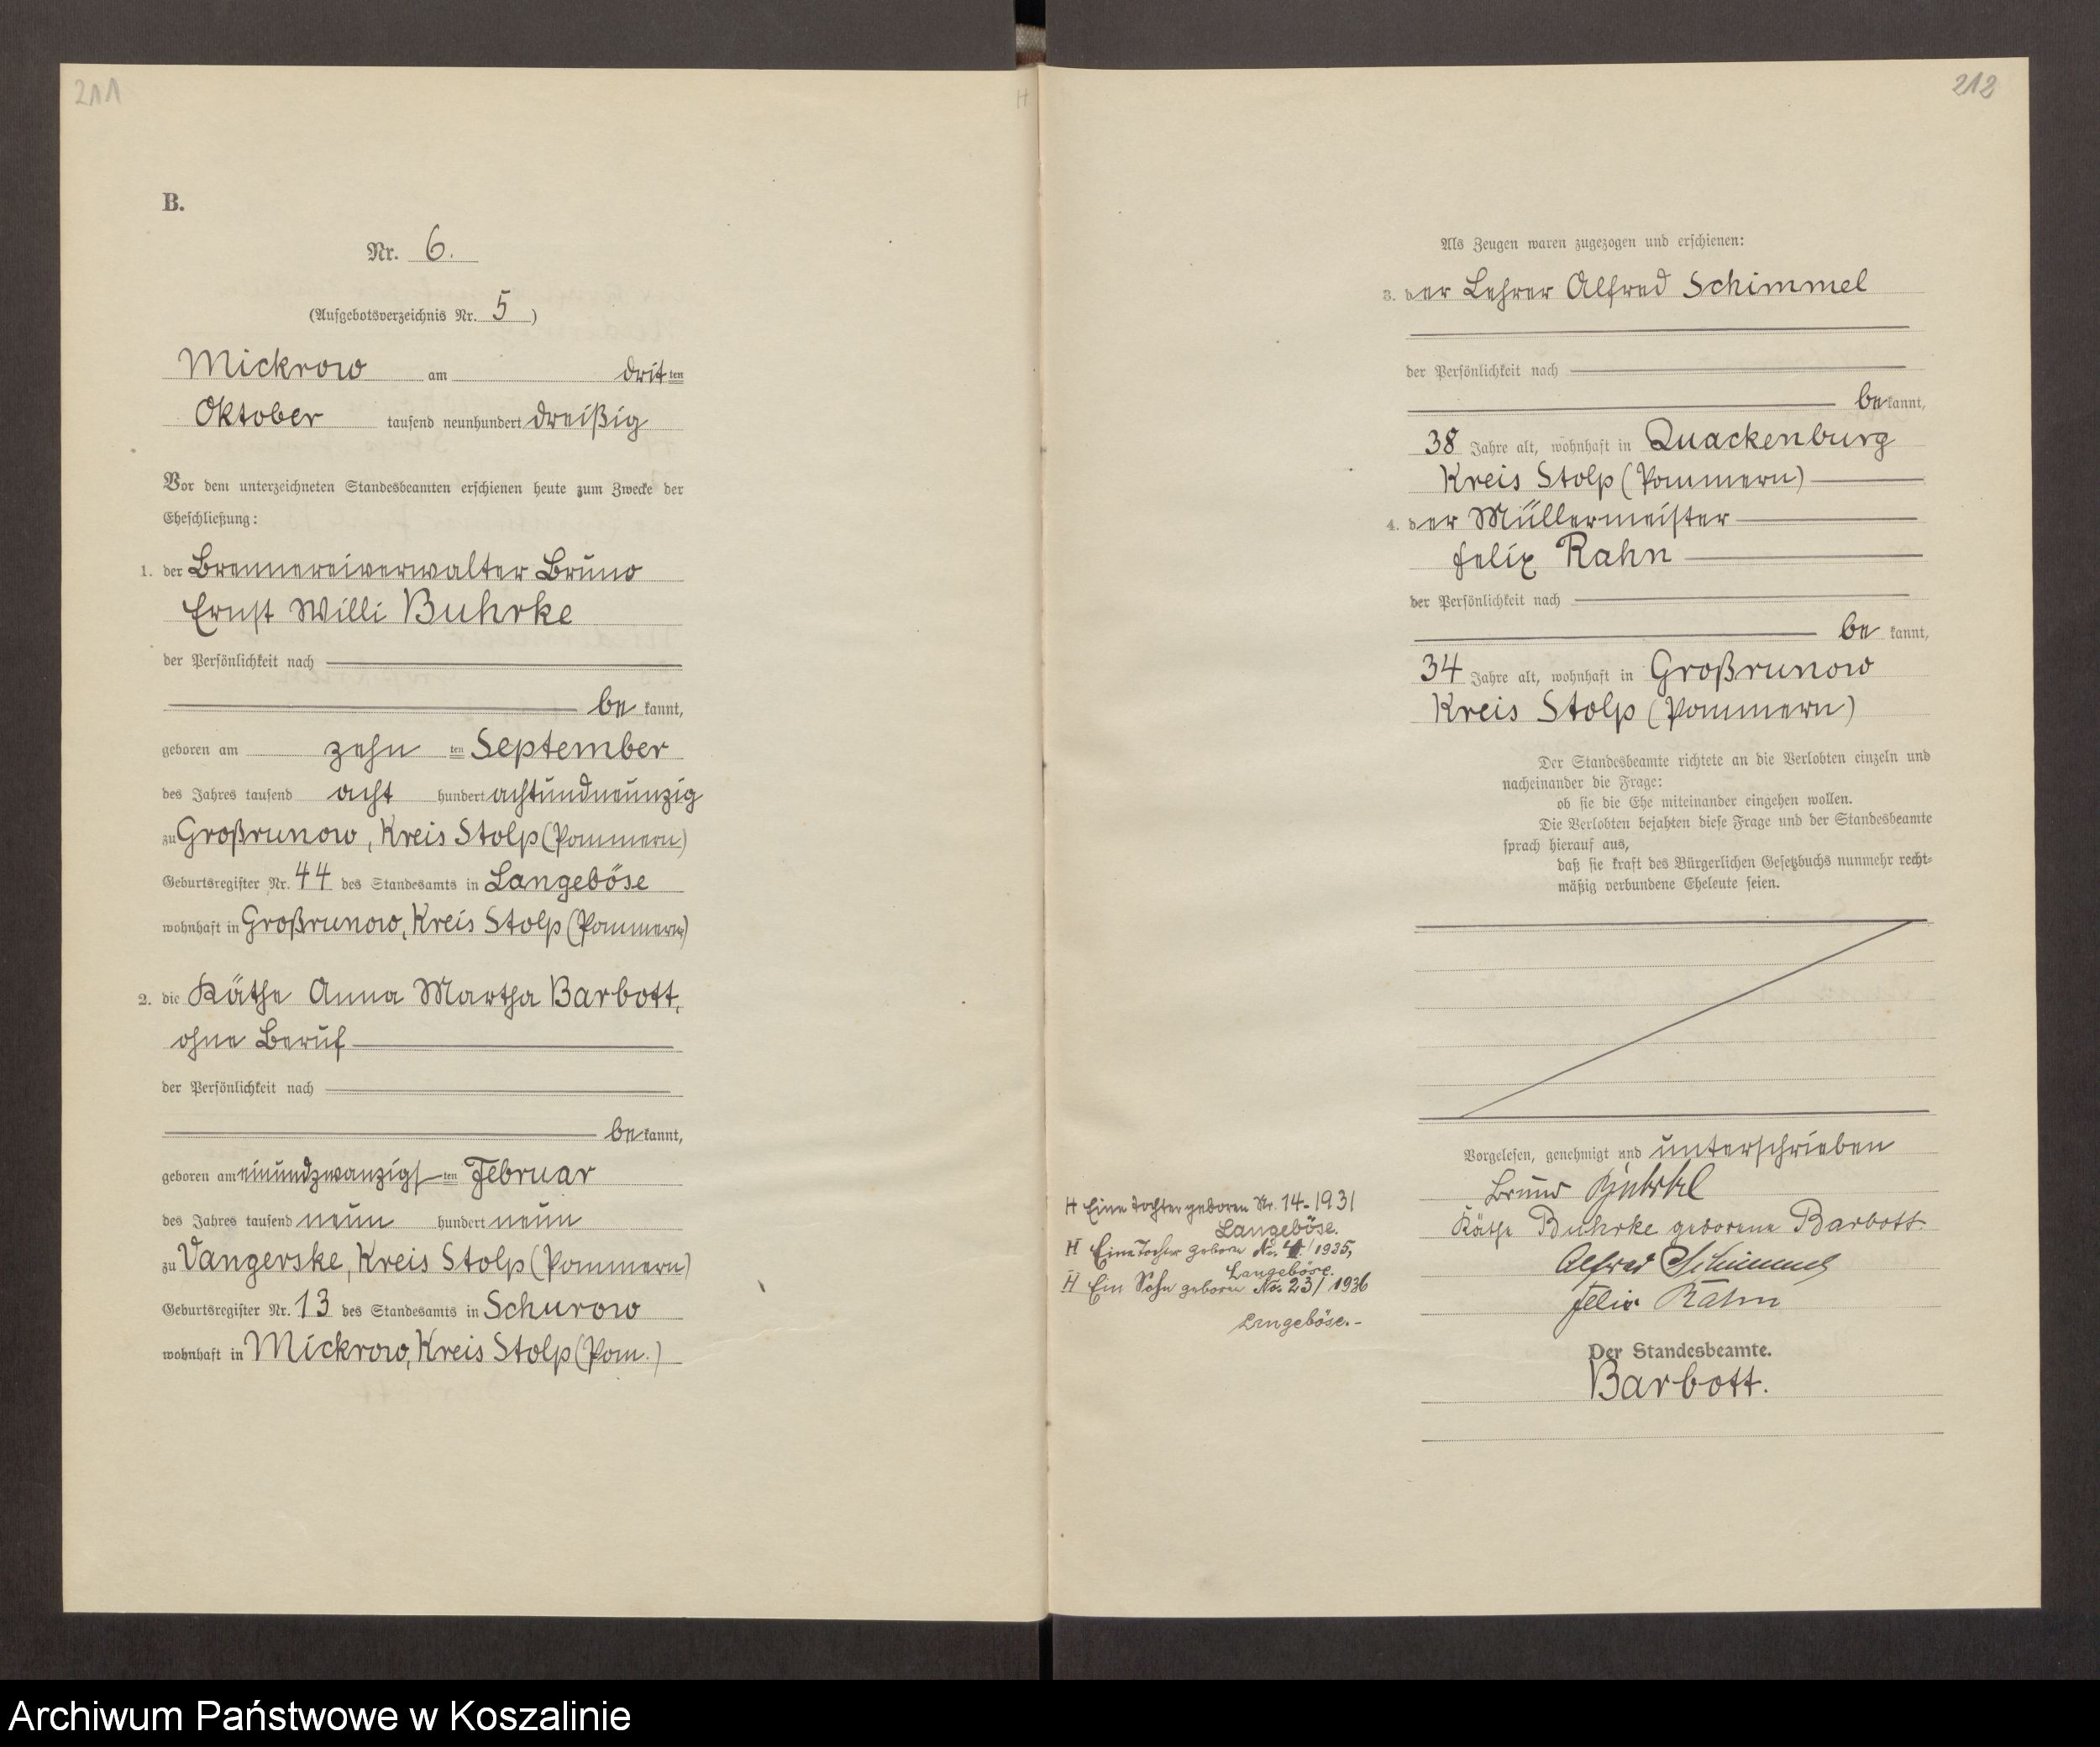 211
H
B.
Nr. 6.
(Aufgebotsverzeichnis Nr. 5)
Mickrow am dritten
Oktober tausend neunhundert dreißig
Vor dem unterzeichneten Standesbeamten erschienen heute zum Zwecke der
Eheschließung:
1. der Brennereiverwalter Bruno
Ernst Willi Buhrke
der Persönlichkeit nach
be kannt,
geboren am zehn ten September
des Jahres tausend acht hundert achtundneunzig
zu Großrunow, Kreis Stolp (Pommern)
Geburtsregister Nr. 44 des Standesamts in Langeböse
wohnhaft in Großrunow, Kreis Stolp (Pommern)
2. die Käthe Anna Martha Barbott,
ohne Beruf
der Persönlichkeit nach
be kannt,
geboren am einundzwanzigsten Februar
des Jahres tausend neun hundert neun
zu Vangerske, Kreis Stolp (Pommern)
Geburtsregister Nr. 13 des Standesamts in Schurow
wohnhaft in Mickrow, Kreis Stolp (Pom.)
212
Als Zeugen waren zugezogen und erschienen:
3. der Lehrer Alfred Schimmel
der Persönlichkeit nach
be kannt,
38 Jahre alt, wohnhaft in Quackenburg
Kreis Stolp (Pommern)
4. der Müllermeister
Felix Rahn
der Persönlichkeit nach
be kannt,
34 Jahre alt, wohnhaft in Großrunow
Kreis Stolp (Pommern)
Der Standesbeamte richtete an die Verlobten einzeln und
nacheinander die Frage:
ob sie die Ehe miteinander eingehen wollen.
Die Verlobten bejahten diese Frage und der Standesbeamte
sprach hierauf aus,
daß sie kraft des Bürgerlichen Gesetzbuchs nunmehr recht-
mäßig verbundene Eheleute seien.
Vorgelesen, genehmigt und unterschrieben
Bruno Buhrke
Käthe Buhrke geborene Barbott.
Alfred Schimmel
Felix Rahn
Der Standesbeamte.
Barbott.
H Eine Tochter geboren Nr. 14-1931
Langeböse.
H Eine Tochter geboren No. /1935,
Langeböse.
H Ein Sohn geboren No. 23/1936
Langeböse.-
Archiwum Państwowe w Koszalinie